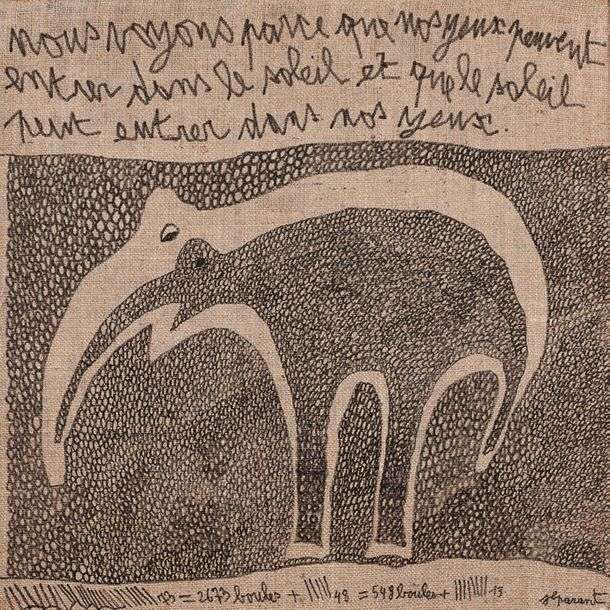 nous voyons parce que nos yeux peuvent
entrer dans le soleil et que le soleil
peut entrer dans nos yeux.
= 2673 boules + 48 = 548 boules + 13 jlparant